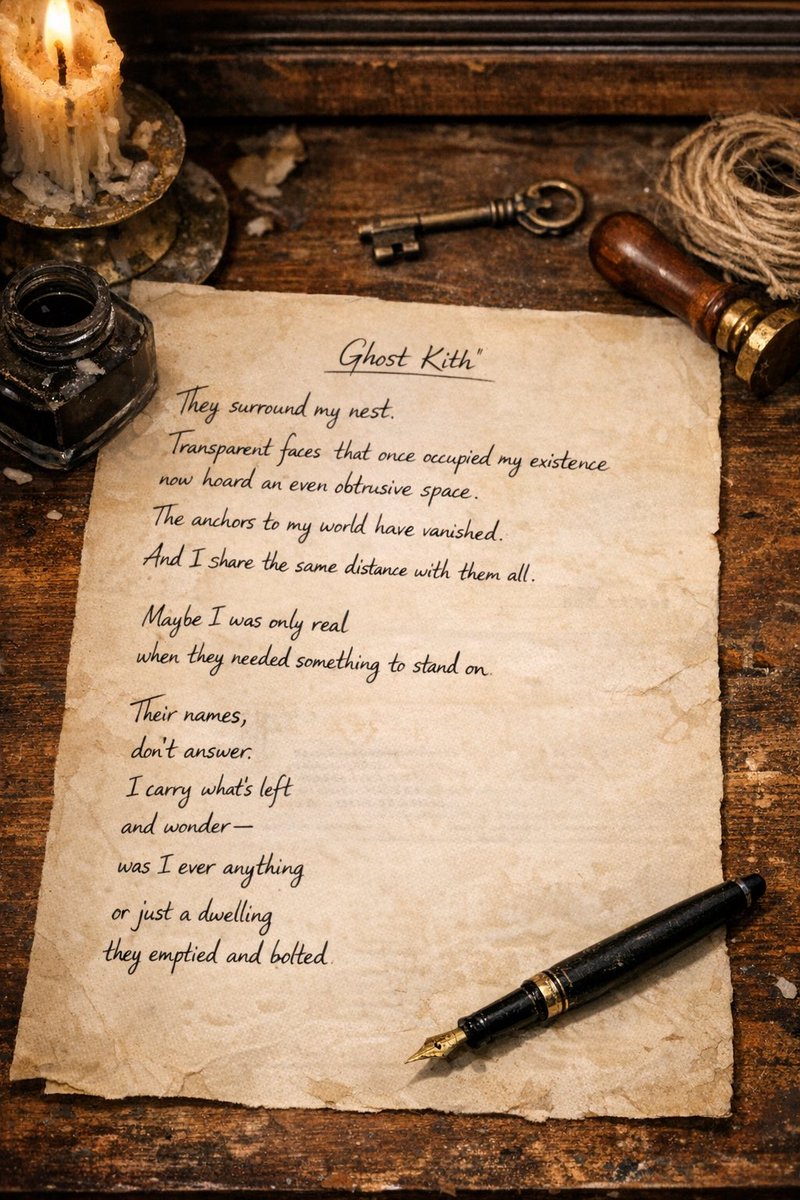 Ghost Kith"
They surround my nest.
Transparent faces that once occupied my existence
now hoard an even obtrusive space.
The anchors to my world have vanished.
And I share the same distance with them all.
Maybe I was only real
when they needed something to stand on.
Their names,
don't answer.
I carry what's left
and wonder—
was I ever anything
or just a dwelling
they emptied and bolted.